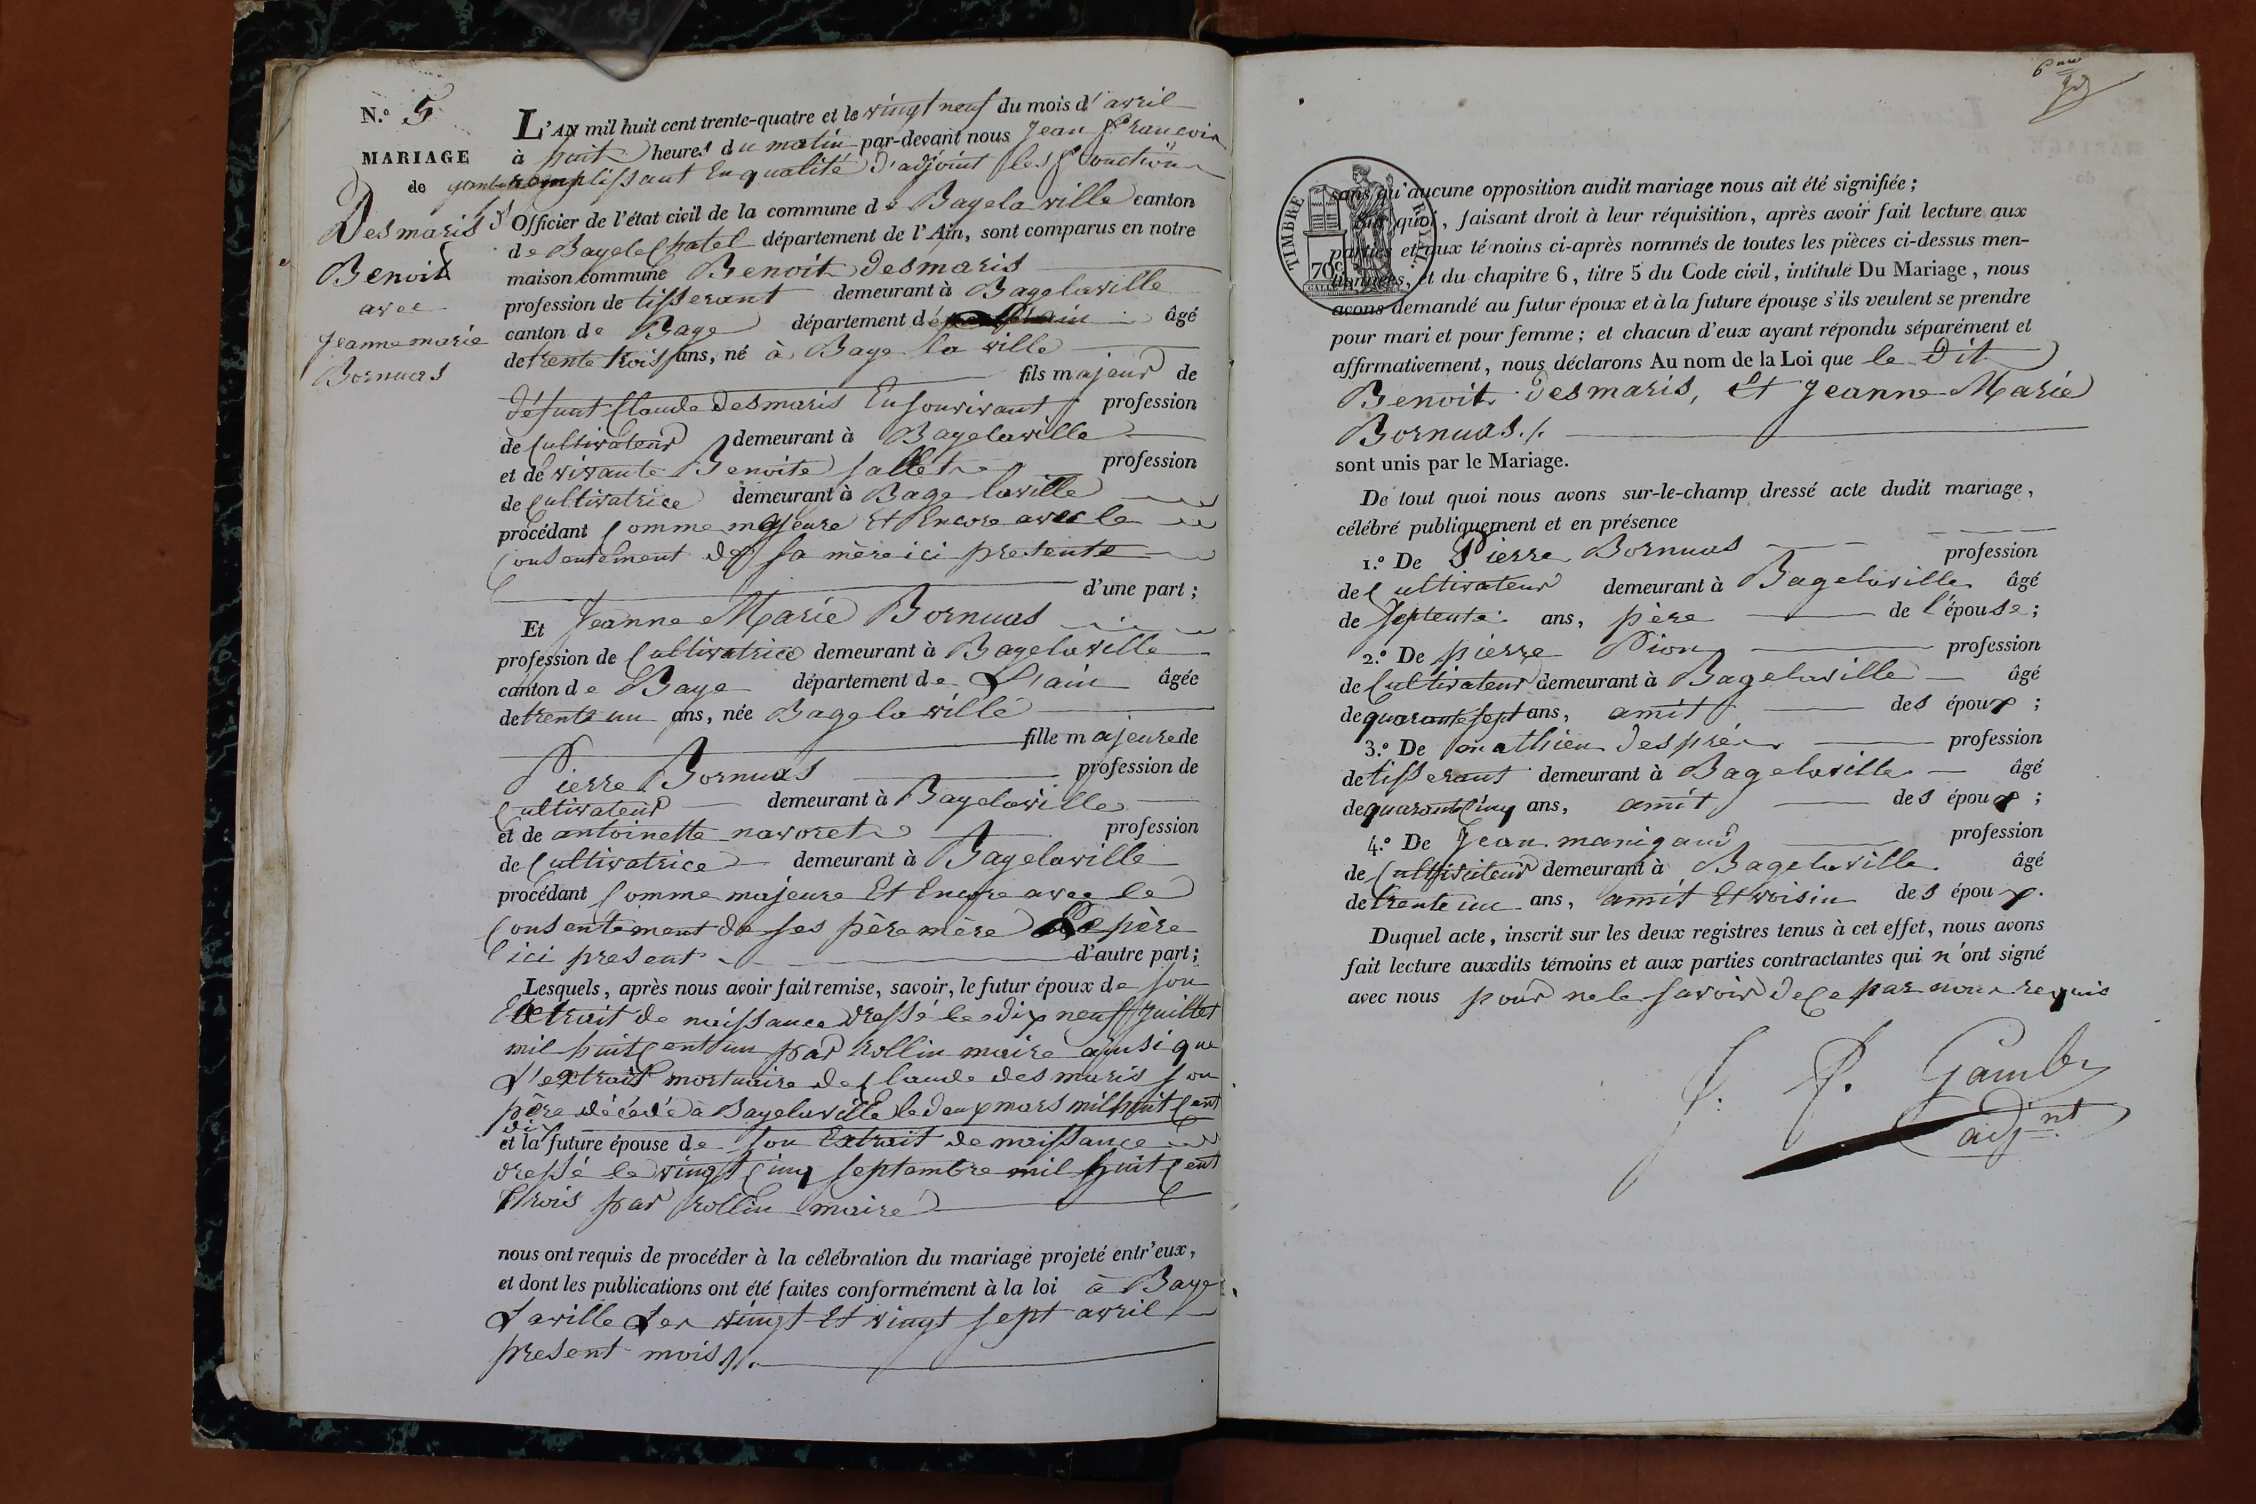 N.º 5
MARIAGE
de
Desmaris
Benoit
avec
Jeanne marie
Bornuas
L'AN mil huit cent trente-quatre et le vingt neuf du mois d'avril
à huit heures du matin par-devant nous Jean francois
gambe remplissant En qualité d'adjoint les fonctions
d' Officier de l'état civil de la commune de Bagelaville canton
de Bagelechatel département de l'Ain, sont comparus en notre
maison commune Benoit desmaris
profession de tisserant demeurant à Bagelaville
canton de Bage département de âgé
de trente trois ans, né à Bage la ville
fils majeur de
défunt Claude desmaris En souvivant profession
de Cultivateur demeurant à Bagelaville
et de vivante Benoite sallet profession
de Cultivatrice demeurant à Bage laville
procédant Comme majeure Et Encore avec le
Consentement de sa mère ici presente
d'une part ;
Et Jeanne Marie Bornuas
profession de Cultivatrice demeurant à Bagelaville
canton de Bage département de L'ain âgée
de trente un ans, née Bagelaville
fille majeure de
Pierre Bornuas profession de
Cultivateur demeurant à Bagelaville
et de antoinette navoret profession
de Cultivatrice demeurant à Bagelaville
procédant Comme majeure Et Encore avec le
Consentement de ses père mère Le père
ici present d'autre part ;
Lesquels, après nous avoir fait remise, savoir, le futur époux de son
Extrait de naissance dressé le dix neuf Juillet
mil huit Cent un par rollin maire ainsi que
L'extrait mortuaire de Claude desmaris son
père décédé à Bagelaville le deux mars mil huit Cent
dix
et la future épouse de son Extrait de naissance
dressé le vingt Cinq septembre mil huit Cent
trois par rollin maire
nous ont requis de procéder à la célébration du mariage projeté entr'eux,
et dont les publications ont été faites conformément à la loi à Bage
Laville Les vingt Et vingt sept avril
present mois
6me
TIMBRE ROYAL
70c
sans qu'aucune opposition audit mariage nous ait été signifiée ;
Sur quoi, faisant droit à leur réquisition, après avoir fait lecture aux
parties et aux témoins ci-après nommés de toutes les pièces ci-dessus men-
tionnées, et du chapitre 6, titre 5 du Code civil, intitulé Du Mariage, nous
avons demandé au futur époux et à la future épouse s'ils veulent se prendre
pour mari et pour femme ; et chacun d'eux ayant répondu séparément et
affirmativement, nous déclarons Au nom de la Loi que le dit
Benoit desmaris, Et Jeanne Marie
Bornuas ./.
sont unis par le Mariage.
De tout quoi nous avons sur-le-champ dressé acte dudit mariage,
célébré publiquement et en présence
1.º De Pierre Bornuas profession
de Cultivateur demeurant à Bagelaville âgé
de septente ans, père de l'épouse ;
2.º De pierre Pion profession
de Cultivateur demeurant à Bagelaville âgé
de quarante sept ans, amit des époux ;
3.º De mathieu després profession
de tisserant demeurant à Bagelaville âgé
de quarente Cinq ans, amit des époux ;
4.º De Jean manigaud profession
de Cultivateur demeurant à Bagelaville âgé
de trente un ans, amit Et voisin des époux.
Duquel acte, inscrit sur les deux registres tenus à cet effet, nous avons
fait lecture auxdits témoins et aux parties contractantes qui n'ont signé
avec nous pour ne le savoir de Ce par nous requis
J. f. Gambe
adjnt